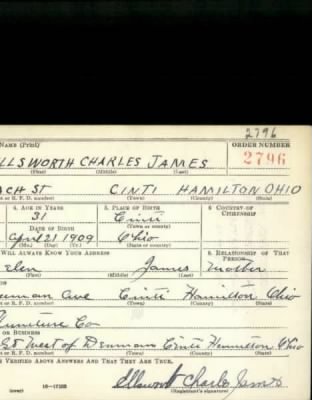 2796
NAME (Print)
ORDER NUMBER
LLSWORTH CHARLES JAMES
2796
(First) (Middle) (Last)
CH ST CINTI HAMILTON OHIO
R. F. D. number) (Town) (County) (State)
4. AGE IN YEARS
5. PLACE OF BIRTH
6. COUNTRY OF CITIZENSHIP
31
Cinti
(Town or county)
DATE OF BIRTH
April 21 1909
Ohio
(Mo.) (Day) (Yr.)
(State or country)
WILL ALWAYS KNOW YOUR ADDRESS
8. RELATIONSHIP OF THAT PERSON
James Mother
(First) (Middle) (Last)
Ave Cinti Hamilton Ohio
R. F. D. number) (Town) (County) (State)
Furniture Co
OR BUSINESS
St West of Denman Cinti Hamilton Ohio
R. F. D. number) (Town) (County) (State)
VERIFIED ABOVE ANSWERS AND THAT THEY ARE TRUE.
Ellsworth Charles James
(over) 16—17105
(Registrant's signature)